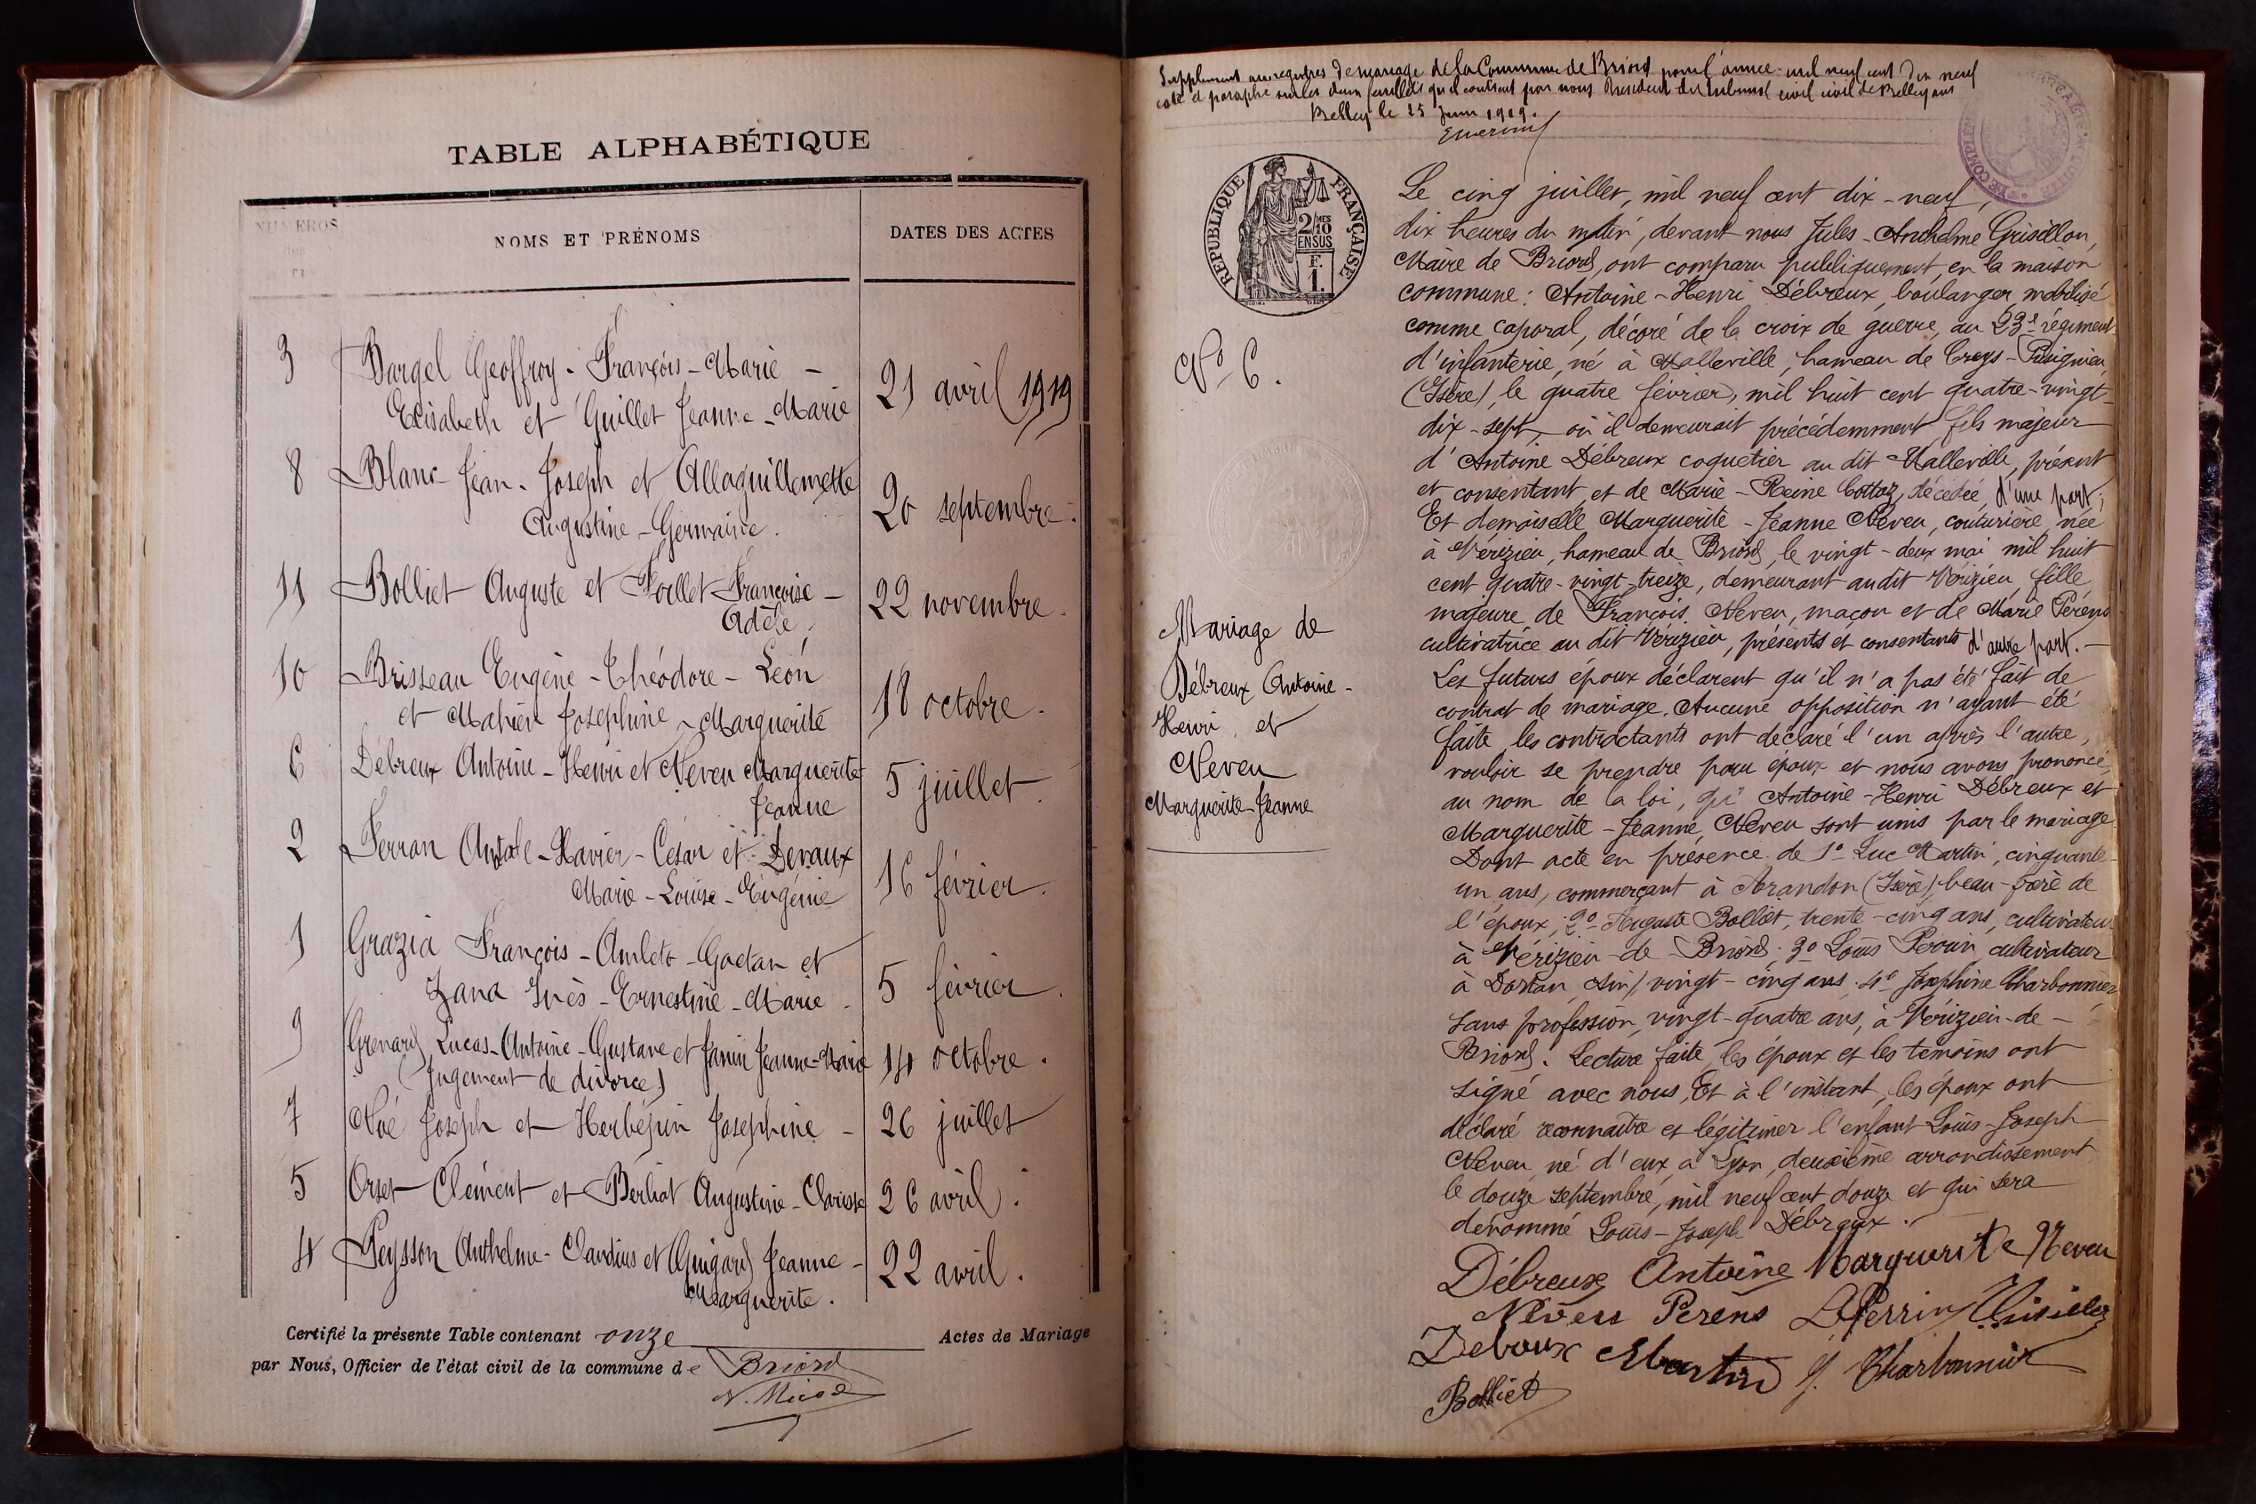 TABLE ALPHABÉTIQUE
NUMEROS
NOMS ET PRÉNOMS
DATES DES ACTES
3 Bargel Geoffroy - François - Marie -
Elisabeth et Guillet Jeanne - Marie
21 avril 1919
8 Blanc Jean - Joseph et Allaguillemette
Augustine - Germaine.
20 septembre.
11 Bolliet Auguste et Poillet Françoise -
Adèle,
22 novembre.
10 Brisseau Eugène - Théodore - Léon
et Josephine - Marguerite
18 octobre.
6 Débreux Antoine - Henri et Neveu Marguerite
Jeanne
5 juillet.
2 Ferran - Xavier - César et Devaux
Marie - Louise - Eugénie
16 février.
1 Grazia François - Amleto - Gaetan et
Zana Inès - Ernestine - Marie.
5 février.
9 Grenard Lucas - Antoine - Gustave et Janin Jeanne - Marie
(Jugement de divorce)
14 octobre.
7 Noé Joseph et Herbépin Joséphine -
26 juillet
5 Orset Clément et Berliat Augustine - Clarisse
26 avril.
4 Peysson Anthelme - Claudius et Guigard Jeanne -
Marguerite.
22 avril.
Certifié la présente Table contenant onze Actes de Mariage
par Nous, Officier de l'état civil de la commune de Briord
Supplément aux registres de mariage de la Commune de Briord pour l'année mil neuf cent dix neuf
coté et paraphé sur les deux feuillets qu'il contient par nous Président du tribunal civil civil de Belley
Belley le 25 Juin 1919.
RÉPUBLIQUE FRANÇAISE
2/10 MES
EN SUS
F.
1.
N° 6.
Mariage de
Débreux Antoine -
Henri et
Neveu
Marguerite - Jeanne
Le cinq juillet, mil neuf cent dix - neuf,
dix heures du matin, devant nous Jules - Anthelme Grisillon,
Maire de Briord, ont comparu publiquement, en la maison
commune : Antoine - Henri Débreux, boulanger, mobilisé
comme caporal, décoré de la croix de guerre, au 23e régiment
d'infanterie, né à Malleville, hameau de Creys - Pusignieu
(Isère), le quatre février, mil huit cent quatre - vingt -
dix - sept, où il demeurait précédemment, fils majeur
d'Antoine Débreux coquetier au dit Malleville, présent
et consentant, et de Marie - Reine Cottaz, décédée, d'une part,
Et demoiselle Marguerite - Jeanne Neveu, couturière, née
à Vérizieu, hameau de Briord, le vingt - deux mai mil huit
cent quatre - vingt - treize, demeurant audit Vérizieu, fille
majeure de François Neveu, maçon et de Marie Peréns
cultivatrice au dit Verizieu, présents et consentants d'autre part. -
Les futurs époux déclarent qu'il n'a pas été fait de
contrat de mariage. Aucune opposition n'ayant été
faite, les contractants ont déclaré l'un après l'autre,
vouloir se prendre pour époux et nous avons prononcé,
au nom de la loi, qu' Antoine - Henri Débreux et
Marguerite - Jeanne Neveu sont unis par le mariage
Dont acte en présence de 1° Luc Martin, cinquante -
un ans, commerçant à Arandon (Isère), beau - frère de
l'époux ; 2° Auguste Bolliet, trente - cinq ans, cultivateur
à Vérizieu - de - Briord ; 3° Louis cultivateur
à Dortan (Ain), vingt - cinq ans ; 4° Joséphine Charbonnier
sans profession, vingt - quatre ans, à Vérizieu - de -
Briord. Lecture faite, les époux et les témoins ont
signé avec nous, Et à l'instant, les époux ont
déclaré reconnaître et légitimer l'enfant Louis - Joseph
Neveu né d'eux, à Lyon, deuxième arrondissement
le douze septembre, mil neuf cent douze et qui sera
dénommé Louis - Joseph Débreux.
Débreux Antoine Marguerite Neveu
Neveu Perens L Perrin
Deboux Martin J. Charbonnier
Bolliet